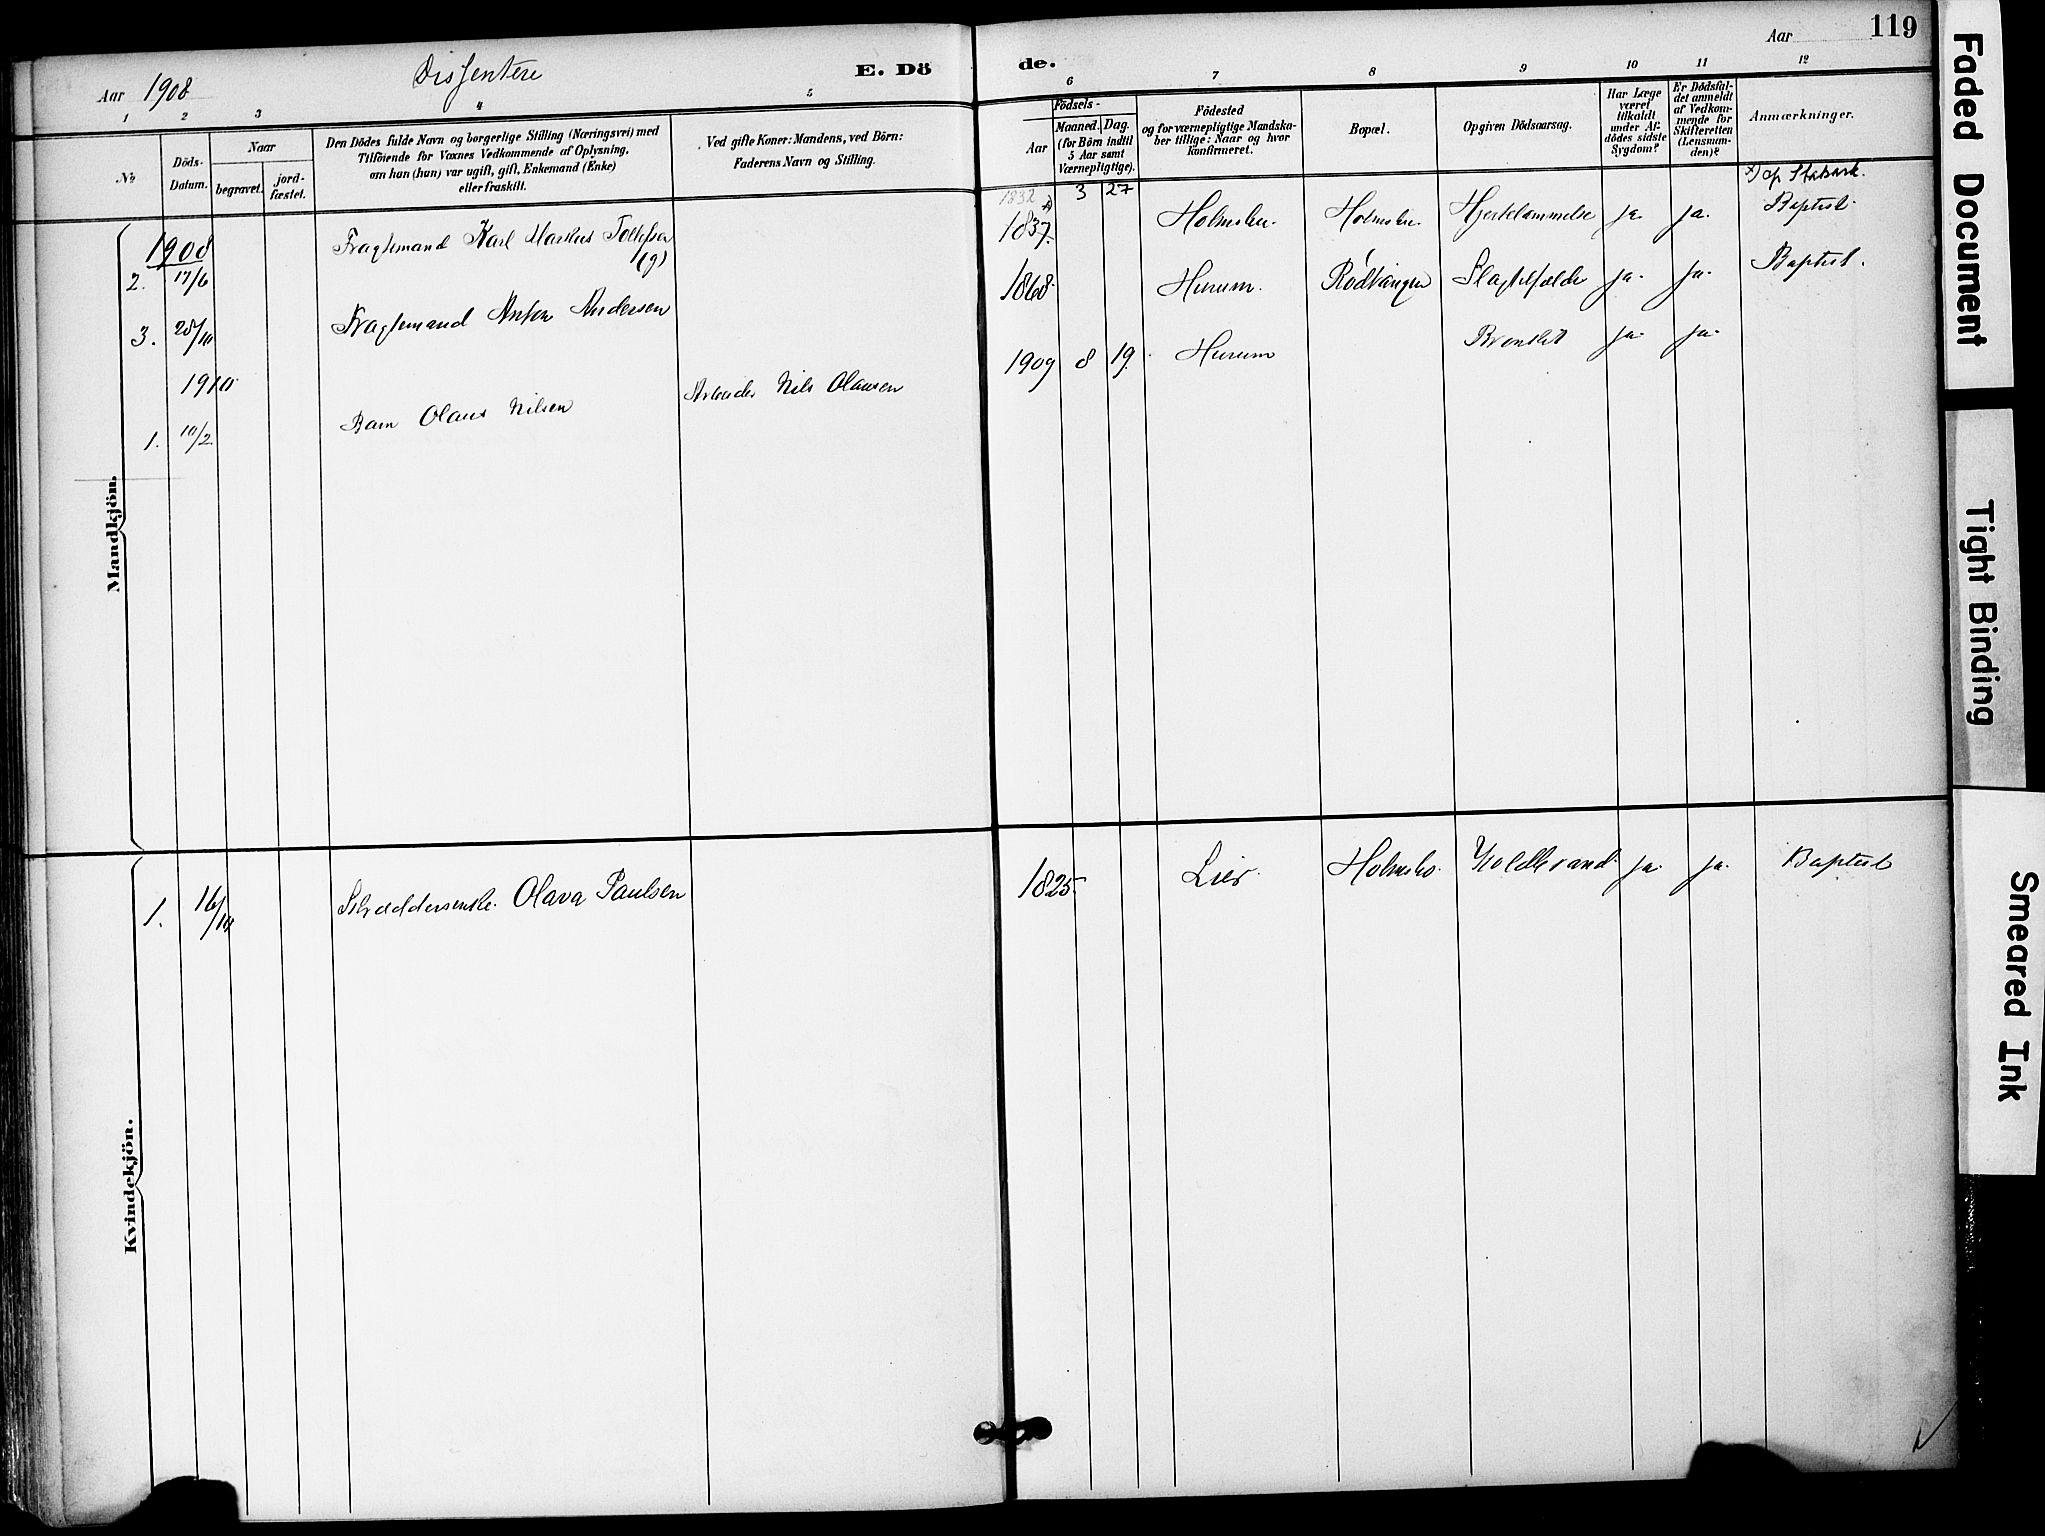 119
Aar 1908
Dissentere
E. Döde.
Aar
1 2 3 4 5 6 7 8 9 10 11 12
No
Döds-Datum.
Naar
begravet.
jord-fæstet.
Den Dödes fulde Navn og borgerlige Stilling (Næringsvei) med
Tilföiende for Voxnes Vedkommende af Oplysning,
om han (hun) var ugift, gift, Enkemand (Enke)
eller fraskilt.
Ved gifte Koner: Mandens, ved Börn:
Faderens Navn og Stilling.
Födsels-
Aar
Maaned. Dag.
(for Börn indtil
5 Aar samt
Værnepligtige).
Födested
og for værnepligtige Mandska-
ber tillige: Naar og hvor
konfirmeret.
Bopæl.
Opgiven Dödsaarsag.
Har Læge
været
tilkaldt
under Af-
dödes sidste
Sygdom?
Er Dödsfal-
det anmeldt
af Vedkom-
mende for
Skifteretten
(Lensman-
den)?
Anmærkninger.
Mandkjön.
1908
2. 17/6 Fragtemand Karl Markus Tollefsen (g) 1832 1837. 3 27 Holmsbu. Holmsbu. Hjertelammelse ja. ja. Baptist.
3. 28/10 Fragtemand Anton Andersen 1868. Hurum. Rödtangen Slagtilfælde ja. ja. Baptist.
1910
1. 10/2 Barn Olaus Nilsen Arbeider Nils Olausen 1909 8 19. Hurum Bronkit ja. ja.
Kvindekjön.
1. 16/10 Skræddersenke. Olava Paulsen 1825. Lier. Holmsbo. Koldbrand. ja. ja. Baptist
Faded Document
Tight Binding
Smeared Ink